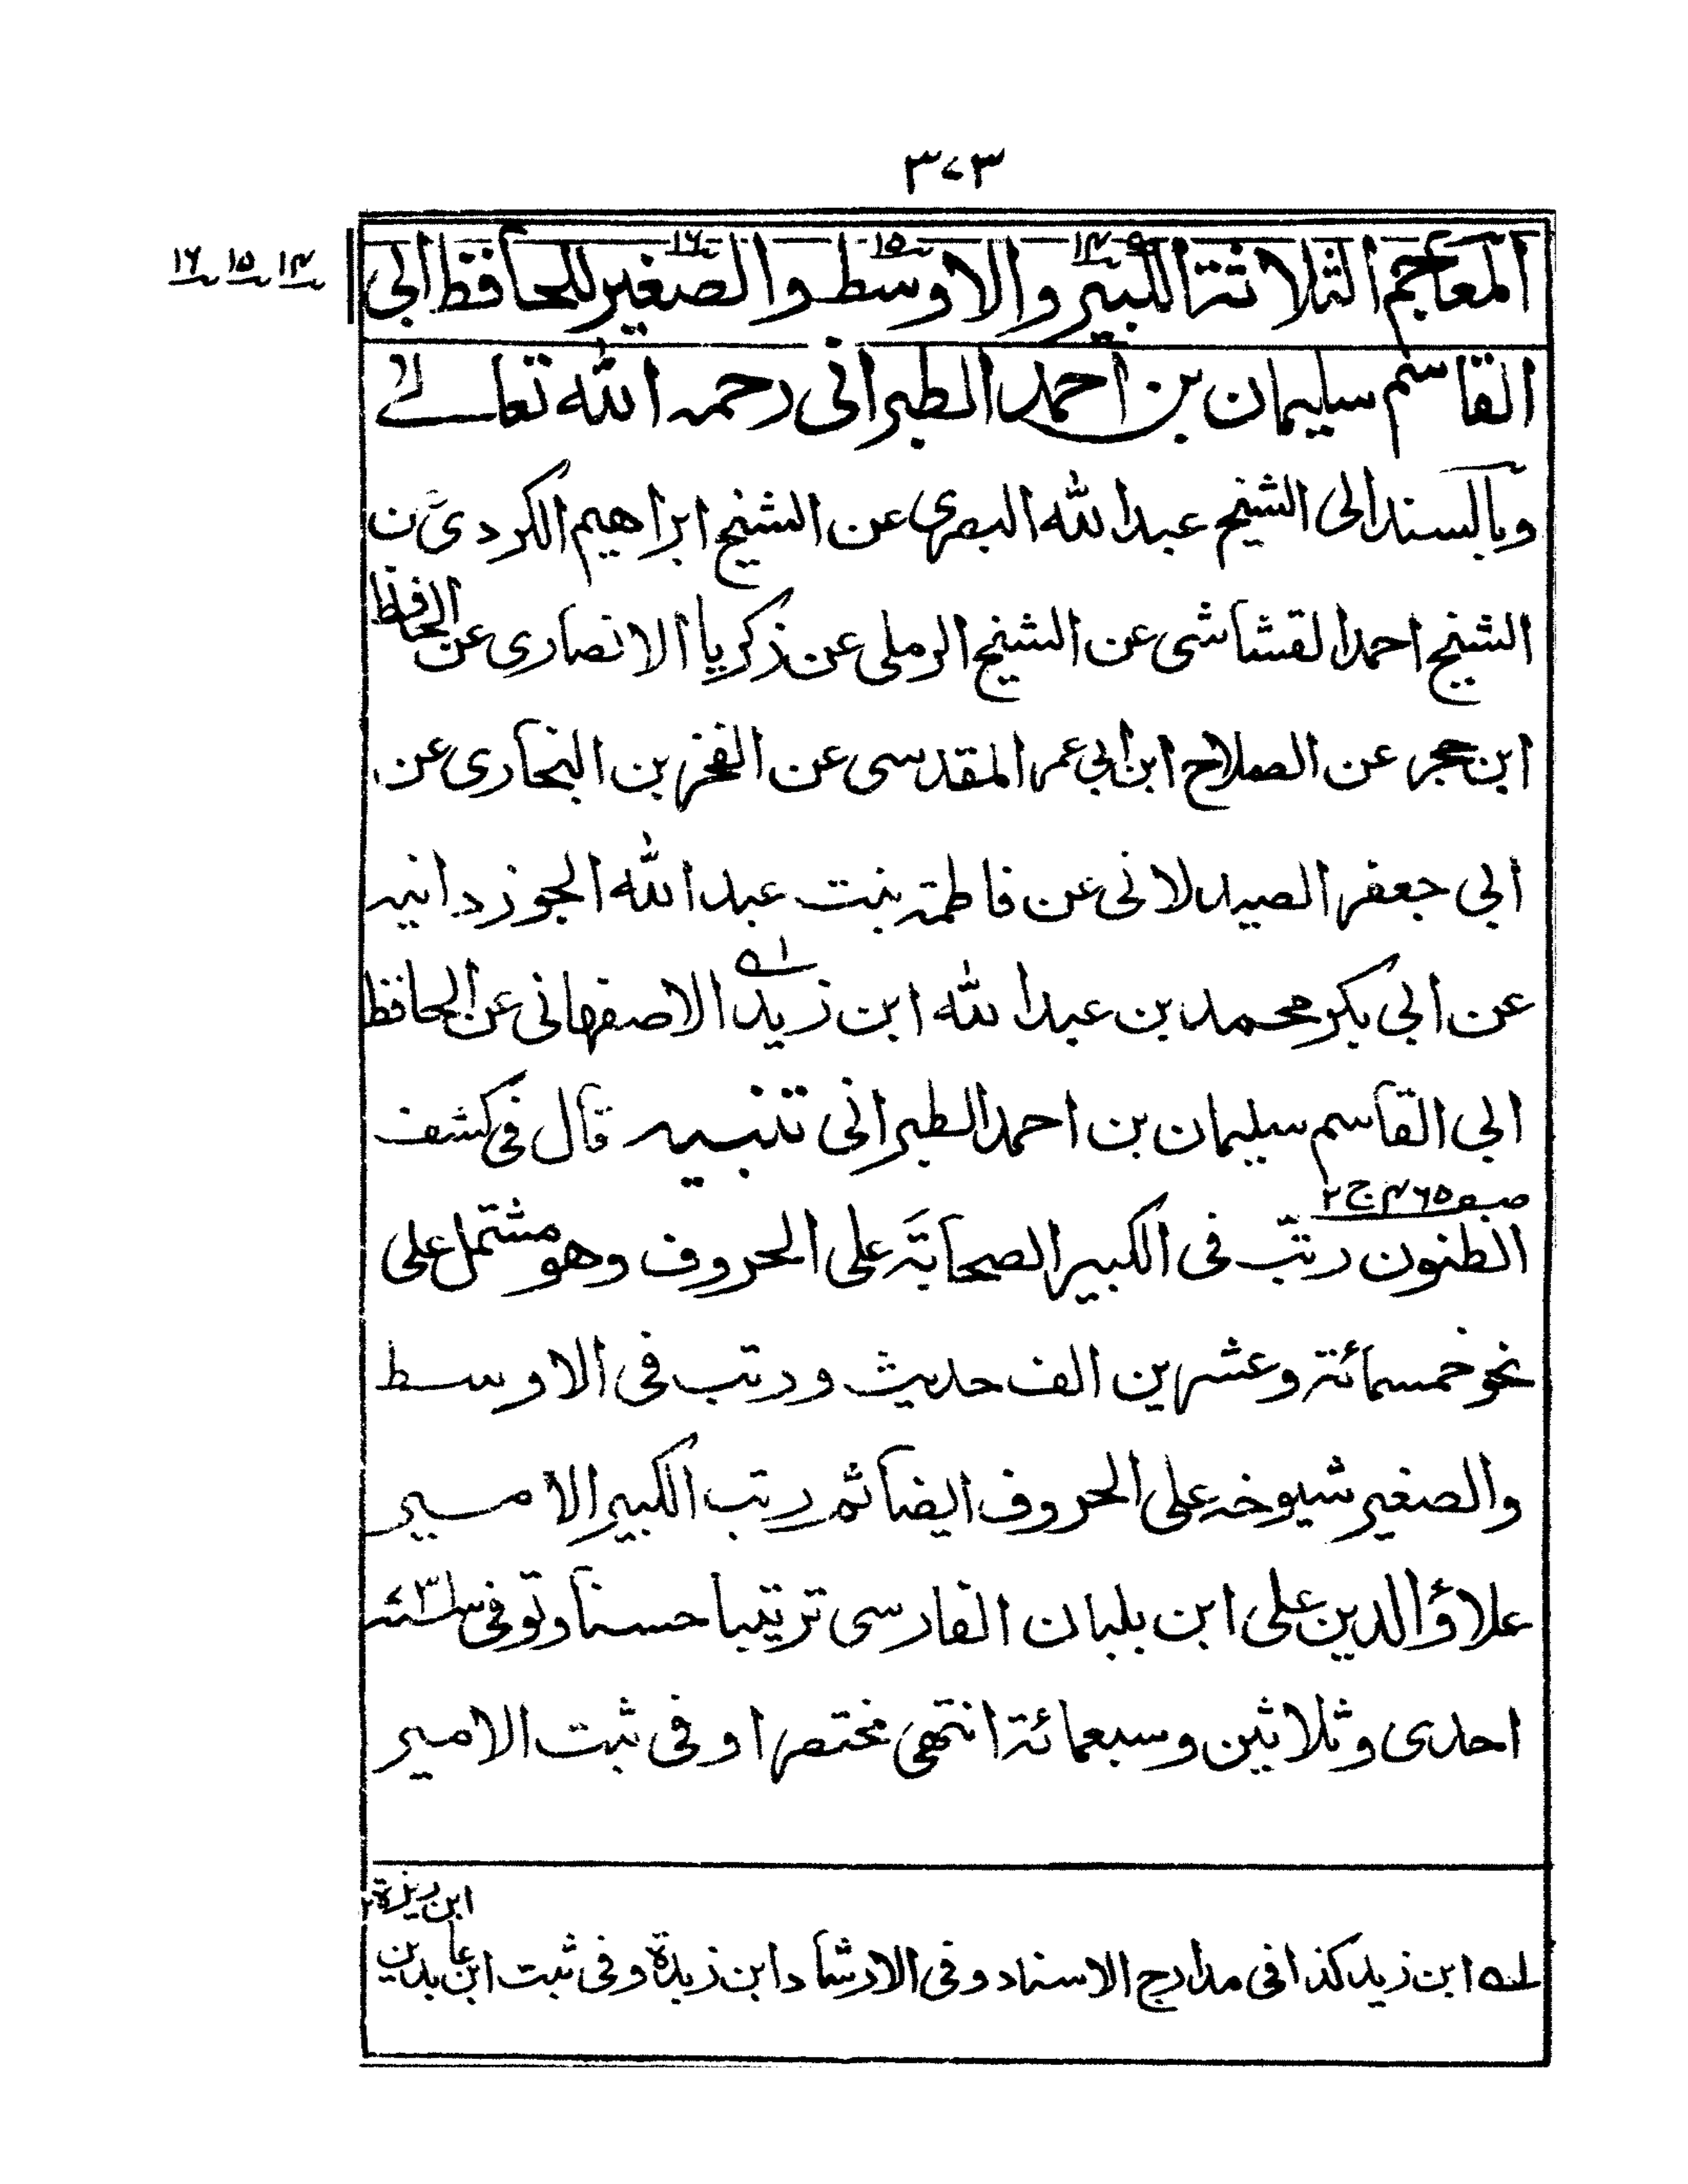 ٣٧٣
١٤ ١٥ ١٦
المعاجم الثلاثة الكبير والاوسط والصغير للحافظ ابى
القاسم سليمان بن احمد الطبرانى رحمه الله تعالے
وبالسند الى الشيخ عبد الله البصرى عن الشيخ ابراهيم الكردى عن
الشيخ احمد القشاشى عن الشيخ الرملى عن زكريا الانصارى عن الحافظ
ابن حجر عن الصلاح ابن ابى عمر المقدسى عن الفخر بن البخارى عن
ابى جعفر الصيدلانى عن فاطمة بنت عبد الله الجوزدانيه
عن ابى بكر محمد بن عبد الله ابن زيد الاصفهانى عن الحافظ
ابى القاسم سليمان بن احمد الطبرانى تنبيه قال فى كشف
صفه ٤٦٥ ج ٢
الظنون رتّب فى الكبير الصحابَة على الحروف وهو مشتمل على
نحو خمسمائة وعشرين الف حديث ورتب فى الاوسط
والصغير شيوخه على الحروف ايضا ثم رتب الكبير الامير
علاؤ الدين على ابن بلبان الفارسى ترتيبا حسنا وتوفى سنة ٧٣١
احدى وثلاثين وسبعمائة انتهى مختصرا وفى ثبت الامير
له ابن زيد كذا فى مدارج الاسناد وفى الارشاد ابن زبدة وفى ثبت ابن عابدين
ابن ريزة